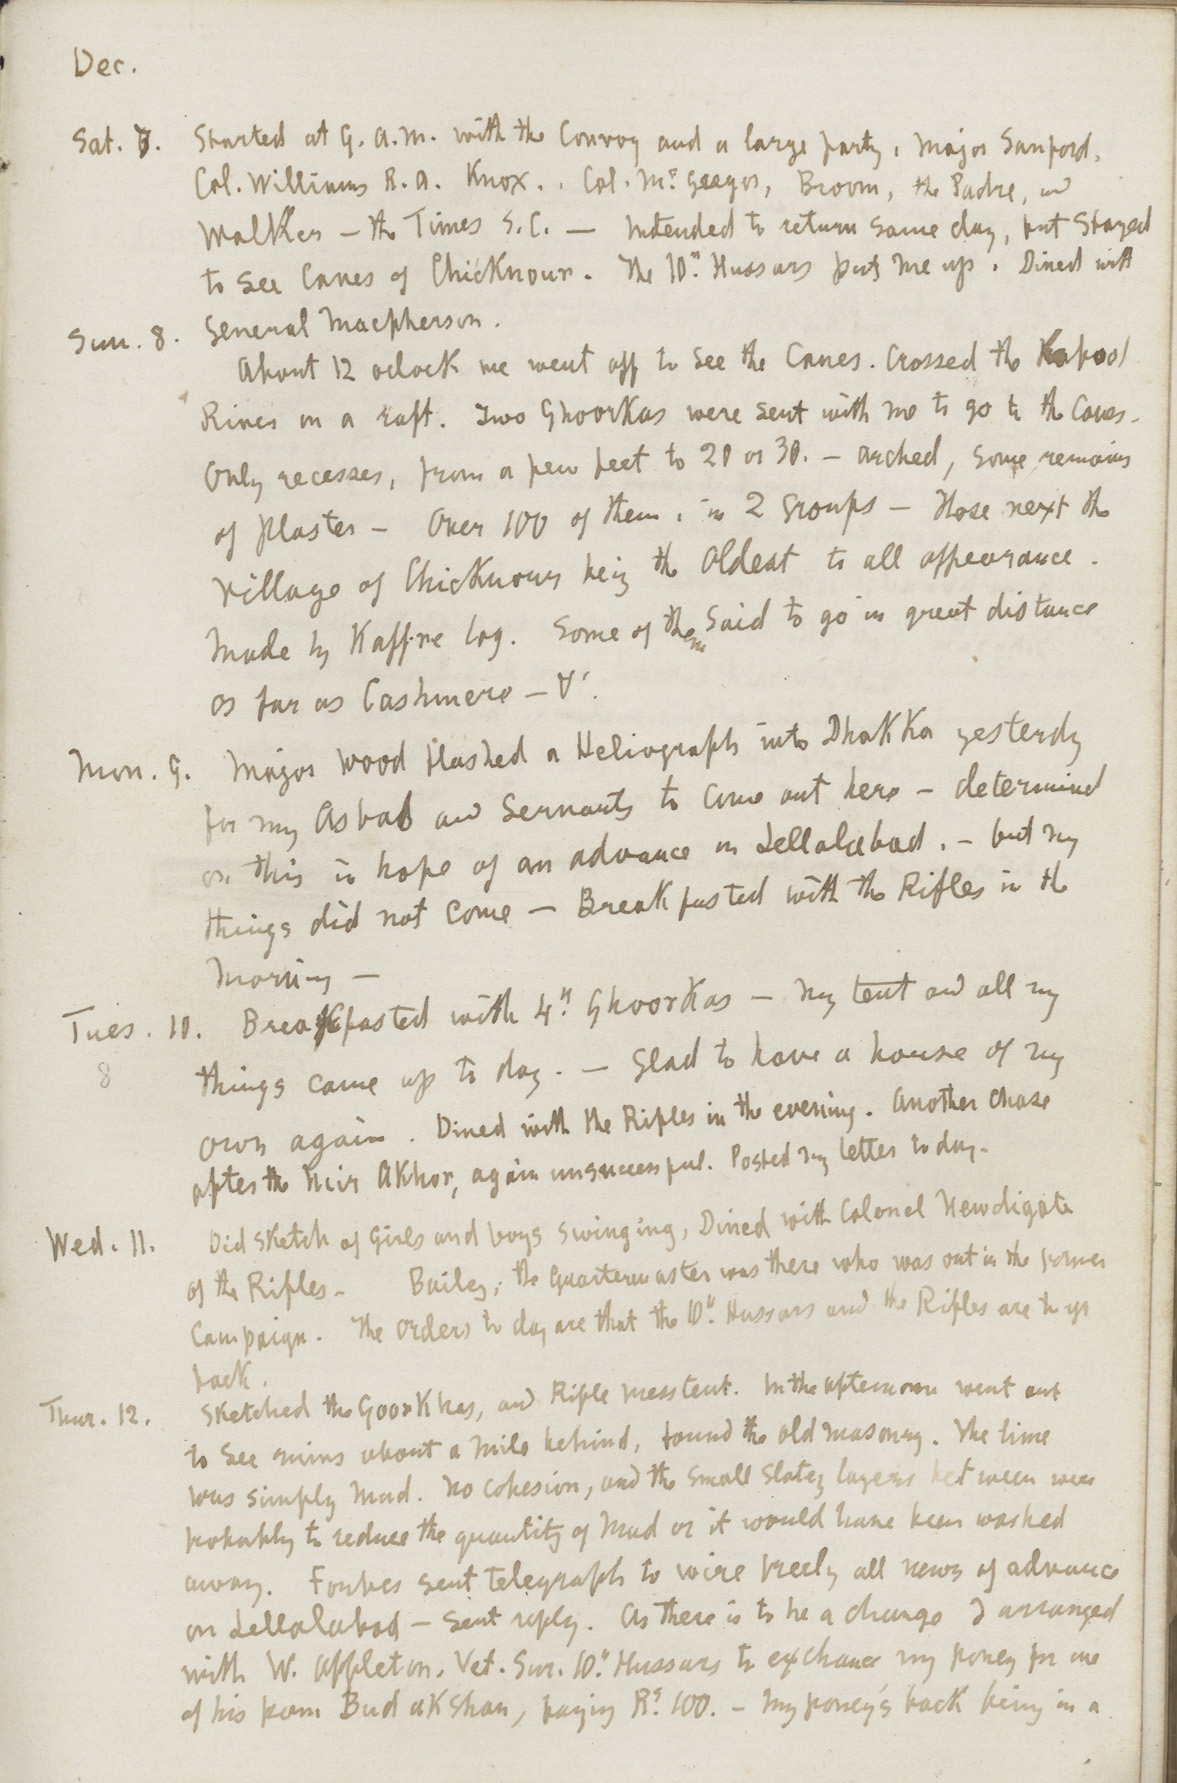 Dec.
Sat. 7. Started at 9. a.m. with the Convoy and a large party, Major Sanford,
Col. Williams R.A. Knox.. Col. McGregor, Broom, the Padre, and
Walker – the Times S.C. – Intended to return same day, but stayed
to see Caves of Chicknour. The 10th Hussars put me up. Dined with
General Macpherson.
Sun. 8.
About 12 oclock we went off to see the Caves. Crossed the Kabool
River on a raft. Two Ghoorkas were sent with me to go to the Caves.
Only recesses, from a few feet to 20 or 30. – arched, some remains
of plaster – Over 100 of them, in 2 groups – those next the
village of Chicknour being the oldest to all appearance.
Made by Kaffre log. Some of them said to go in great distance
as far as Cashmere –
Mon. 9. Major Wood flashed a Heliograph into Dhakka yesterdy
for my Asbab and Servants to come out here – determined
on this in hope of an advance on Jellalabad. – but my
things did not come – Breakfasted with the Rifles in the
Morning –
Tues. 10. Breakfasted with 4th Ghoorkas – my tent and all my
8
things came up to day. – Glad to have a house of my
own again. Dined with the Rifles in the evening. Another chase
after the Mir Akhor, again unsuccessful. Posted my letter to day.
Wed. 11. Did sketch of Girls and boys swinging, Dined with Colonel Newdigate
of the Rifles – Bailey, the Quartermaster was there who was out in the former
Campaign. The orders to day are that the 10th Hussars and the Rifles are to go
back.
Thur. 12. Sketched the Goorkhas, and Rifle mess tent. In the afternoon went out
to see ruins about a mile behind, found the old masonry. The lime
was simply mud. No cohesion, and the small slatey layers between were
probably to reduce the quantity of mud or it would have been washed
away. Forbes sent telegraph to wire freely all news of advance
on Jellalabad – sent reply. As there is to be a change I arranged
with W. Appleton, Vet. Sur. 10th Hussars to exchance my poney for one
of his from Budakshan, paying Rs 100. – My poney's back being in a